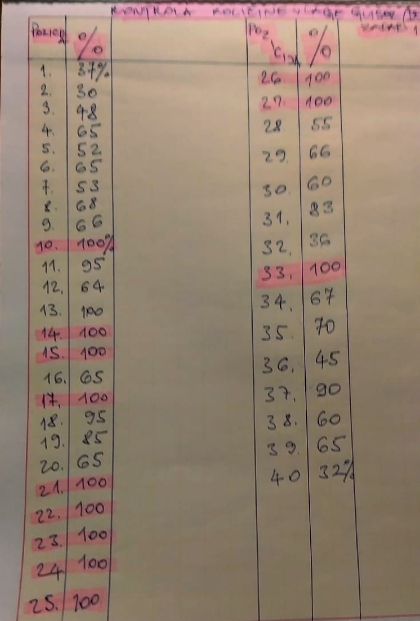 KONTROLA KOLIČINE VLAGE
%
1. 37%
2. 30
3. 48
4. 65
5. 52
6. 65
7. 53
8. 68
9. 66
10. 100%
11. 95
12. 64
13. 100
14. 100
15. 100
16. 65
17. 100
18. 95
19. 85
20. 65
21. 100
22. 100
23. 100
24 100
25. 100
Poz %
26 100
27. 100
28 55
29. 66
30. 60
31. 83
32. 36
33. 100
34. 67
35. 70
36. 45
37. 90
38. 60
39. 65
40 32%